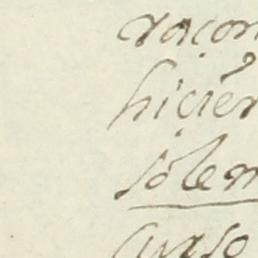 racon
hicier
solem
curso